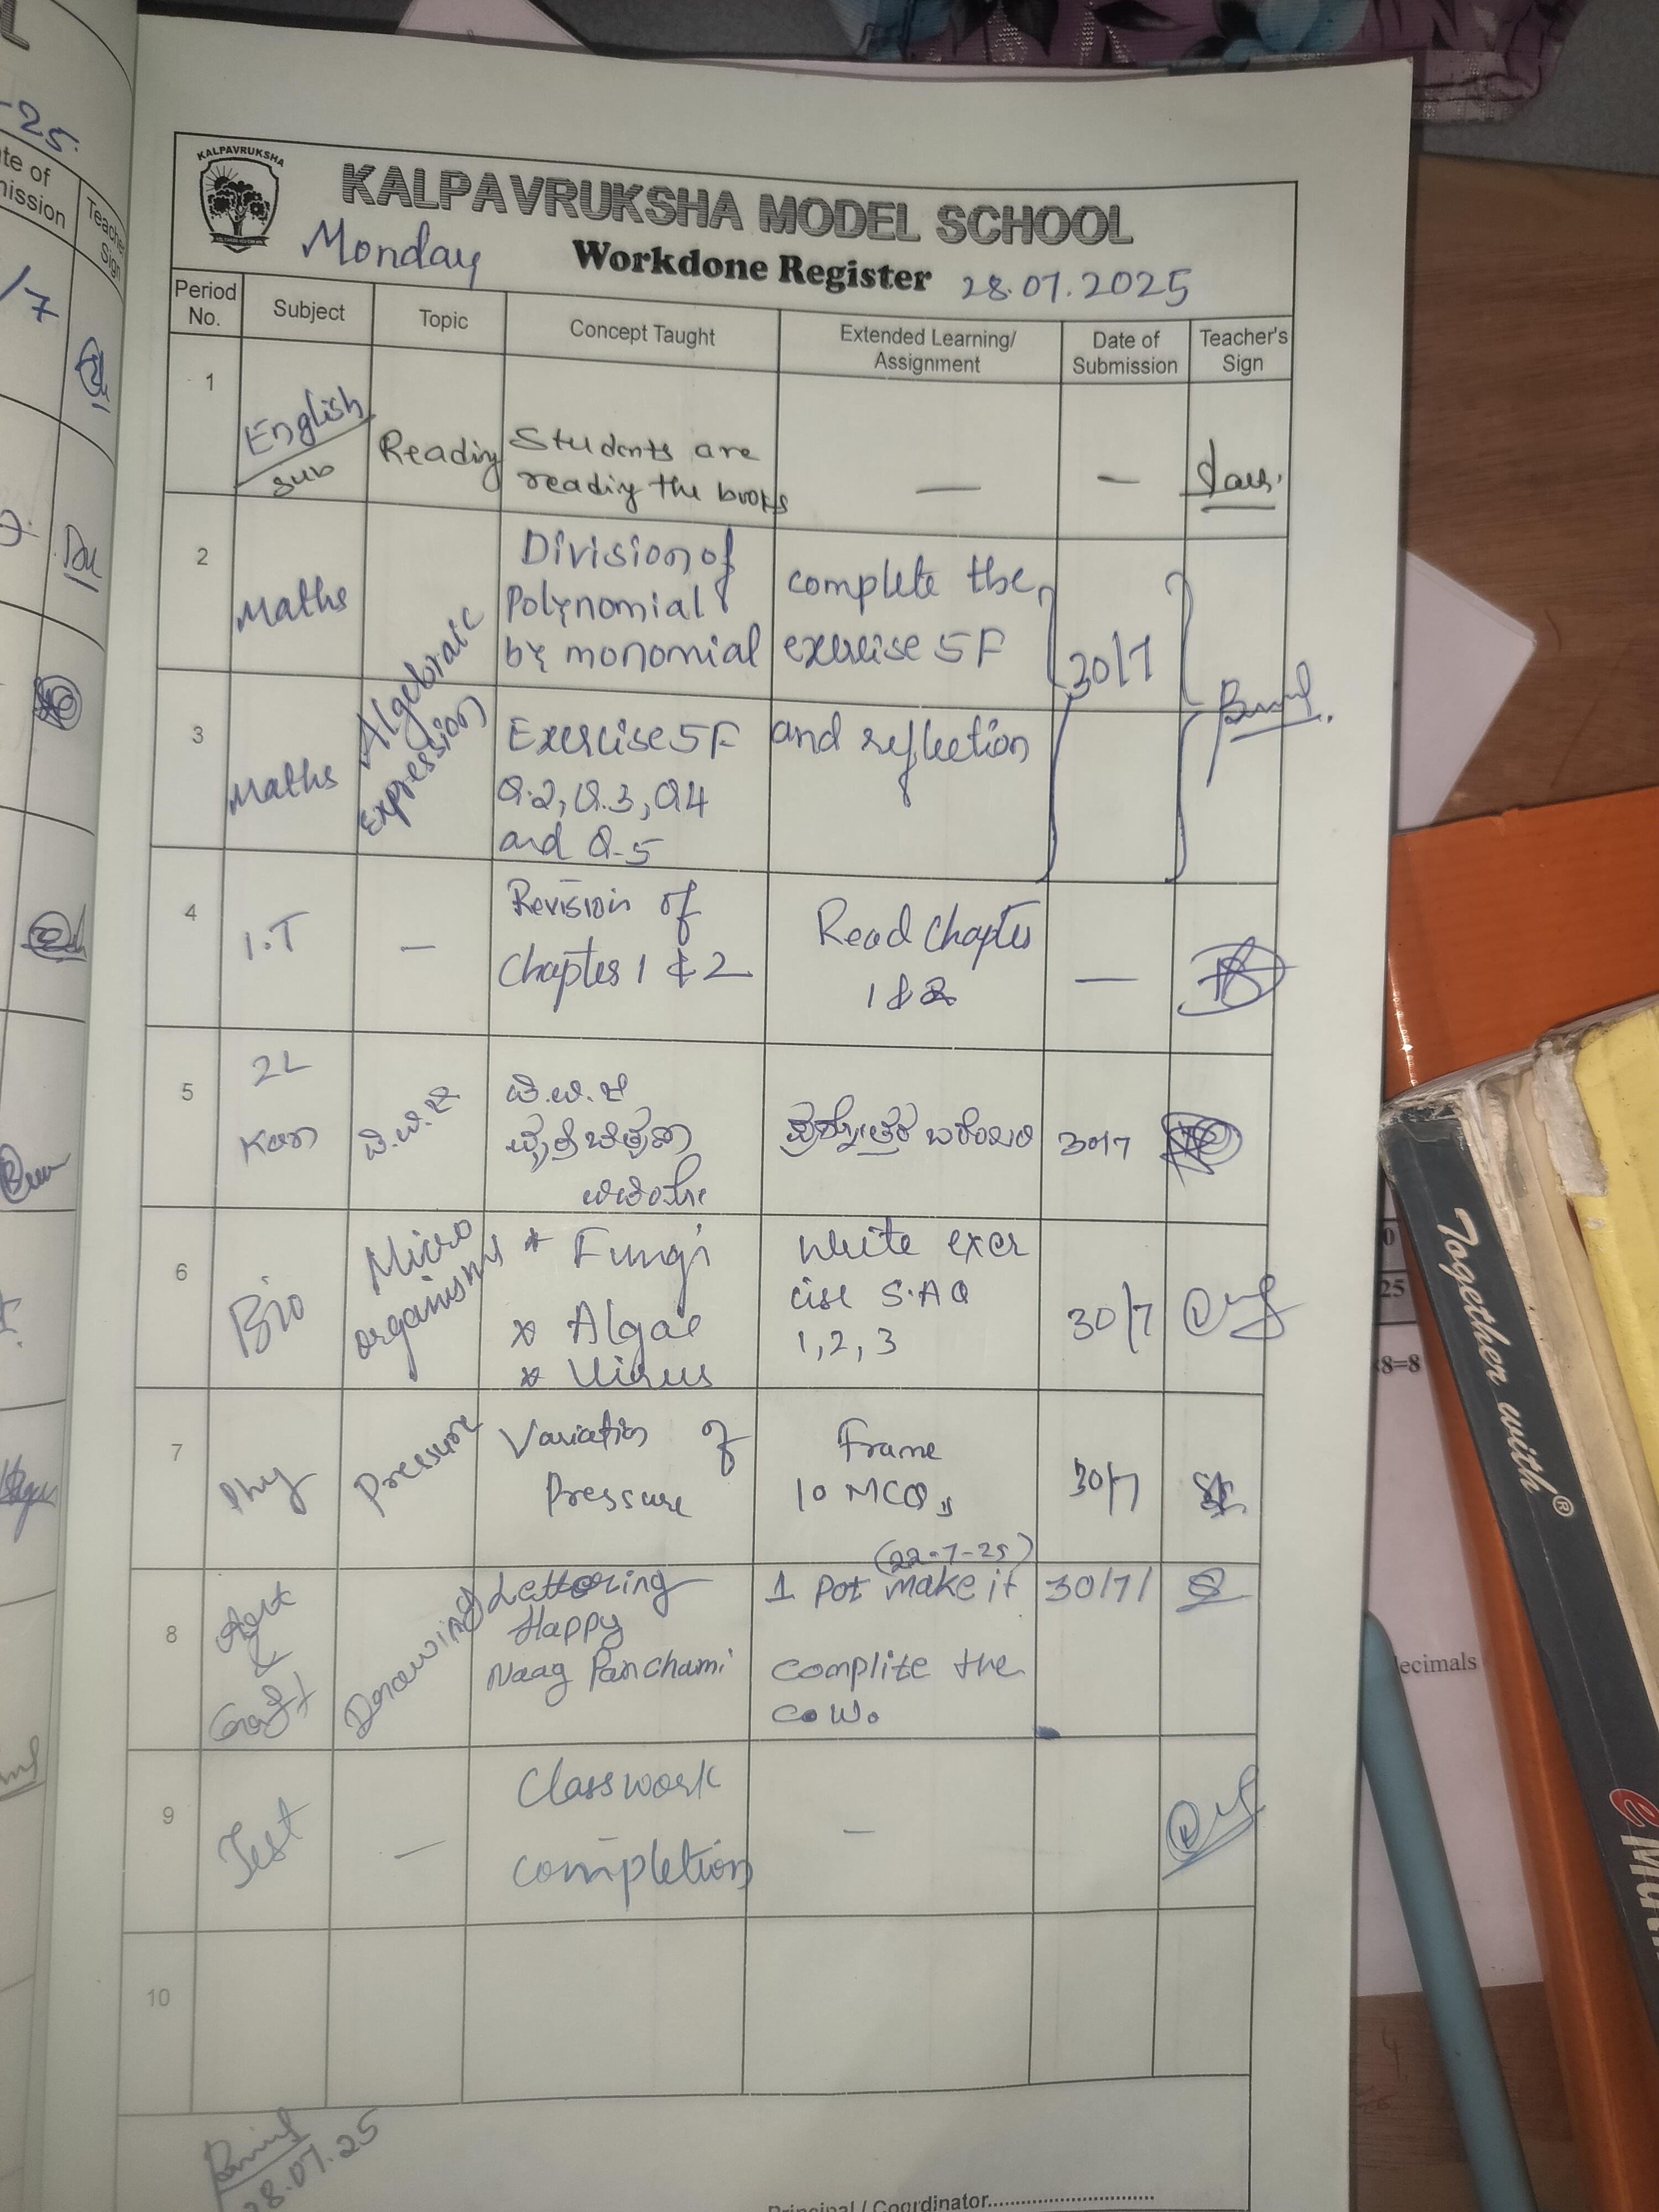 KALPAVRUKSHA
KALPAVRUKSHA MODEL SCHOOL
Monday
Workdone Register 28.07.2025
Period No.
Subject
Topic
Concept Taught
Extended Learning/
Assignment
Date of
Submission
Teacher's
Sign
1
English
sub
Reading
Students are
reading the books
—
—
2
Maths
Algebraic
Expression
Division of
Polynomial
by monomial
complete the
exercise 5F
30/7
3
Maths
Exercise 5F
Q.2, Q.3, Q4
and Q.5
and reflection
4
I.T
—
Revision of
Chapter 1 & 2
Read Chapter
1 & 2
—
5
2L
Kan
30/7
6
Bio
Micro
organisms
* Fungi
* Algae
* Virus
Write exer
cise S.A.Q
1, 2, 3
30/7
7
Phy
Pressure
Variation of
Pressure
Frame
10 MCQs
30/7
8
Art
&
Craft
Drawing
Lettering
Happy
Naag Panchami
(22-7-25)
1 pot make it
complite the
C.W.
30/7/
9
Test
—
Classwork
completion
—
10
28.07.25
Principal / Coordinator
-25
Teacher
Sign
/7
Together with®
25
8=8
ecimals